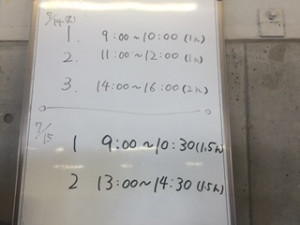 1. 9:00~10:00 (1h)
2. 11:00~12:00 (1h)
3. 14:00~16:00 (2h)
7/15
1 9:00~10:30 (1.5h)
2 13:00~14:30 (1.5h)